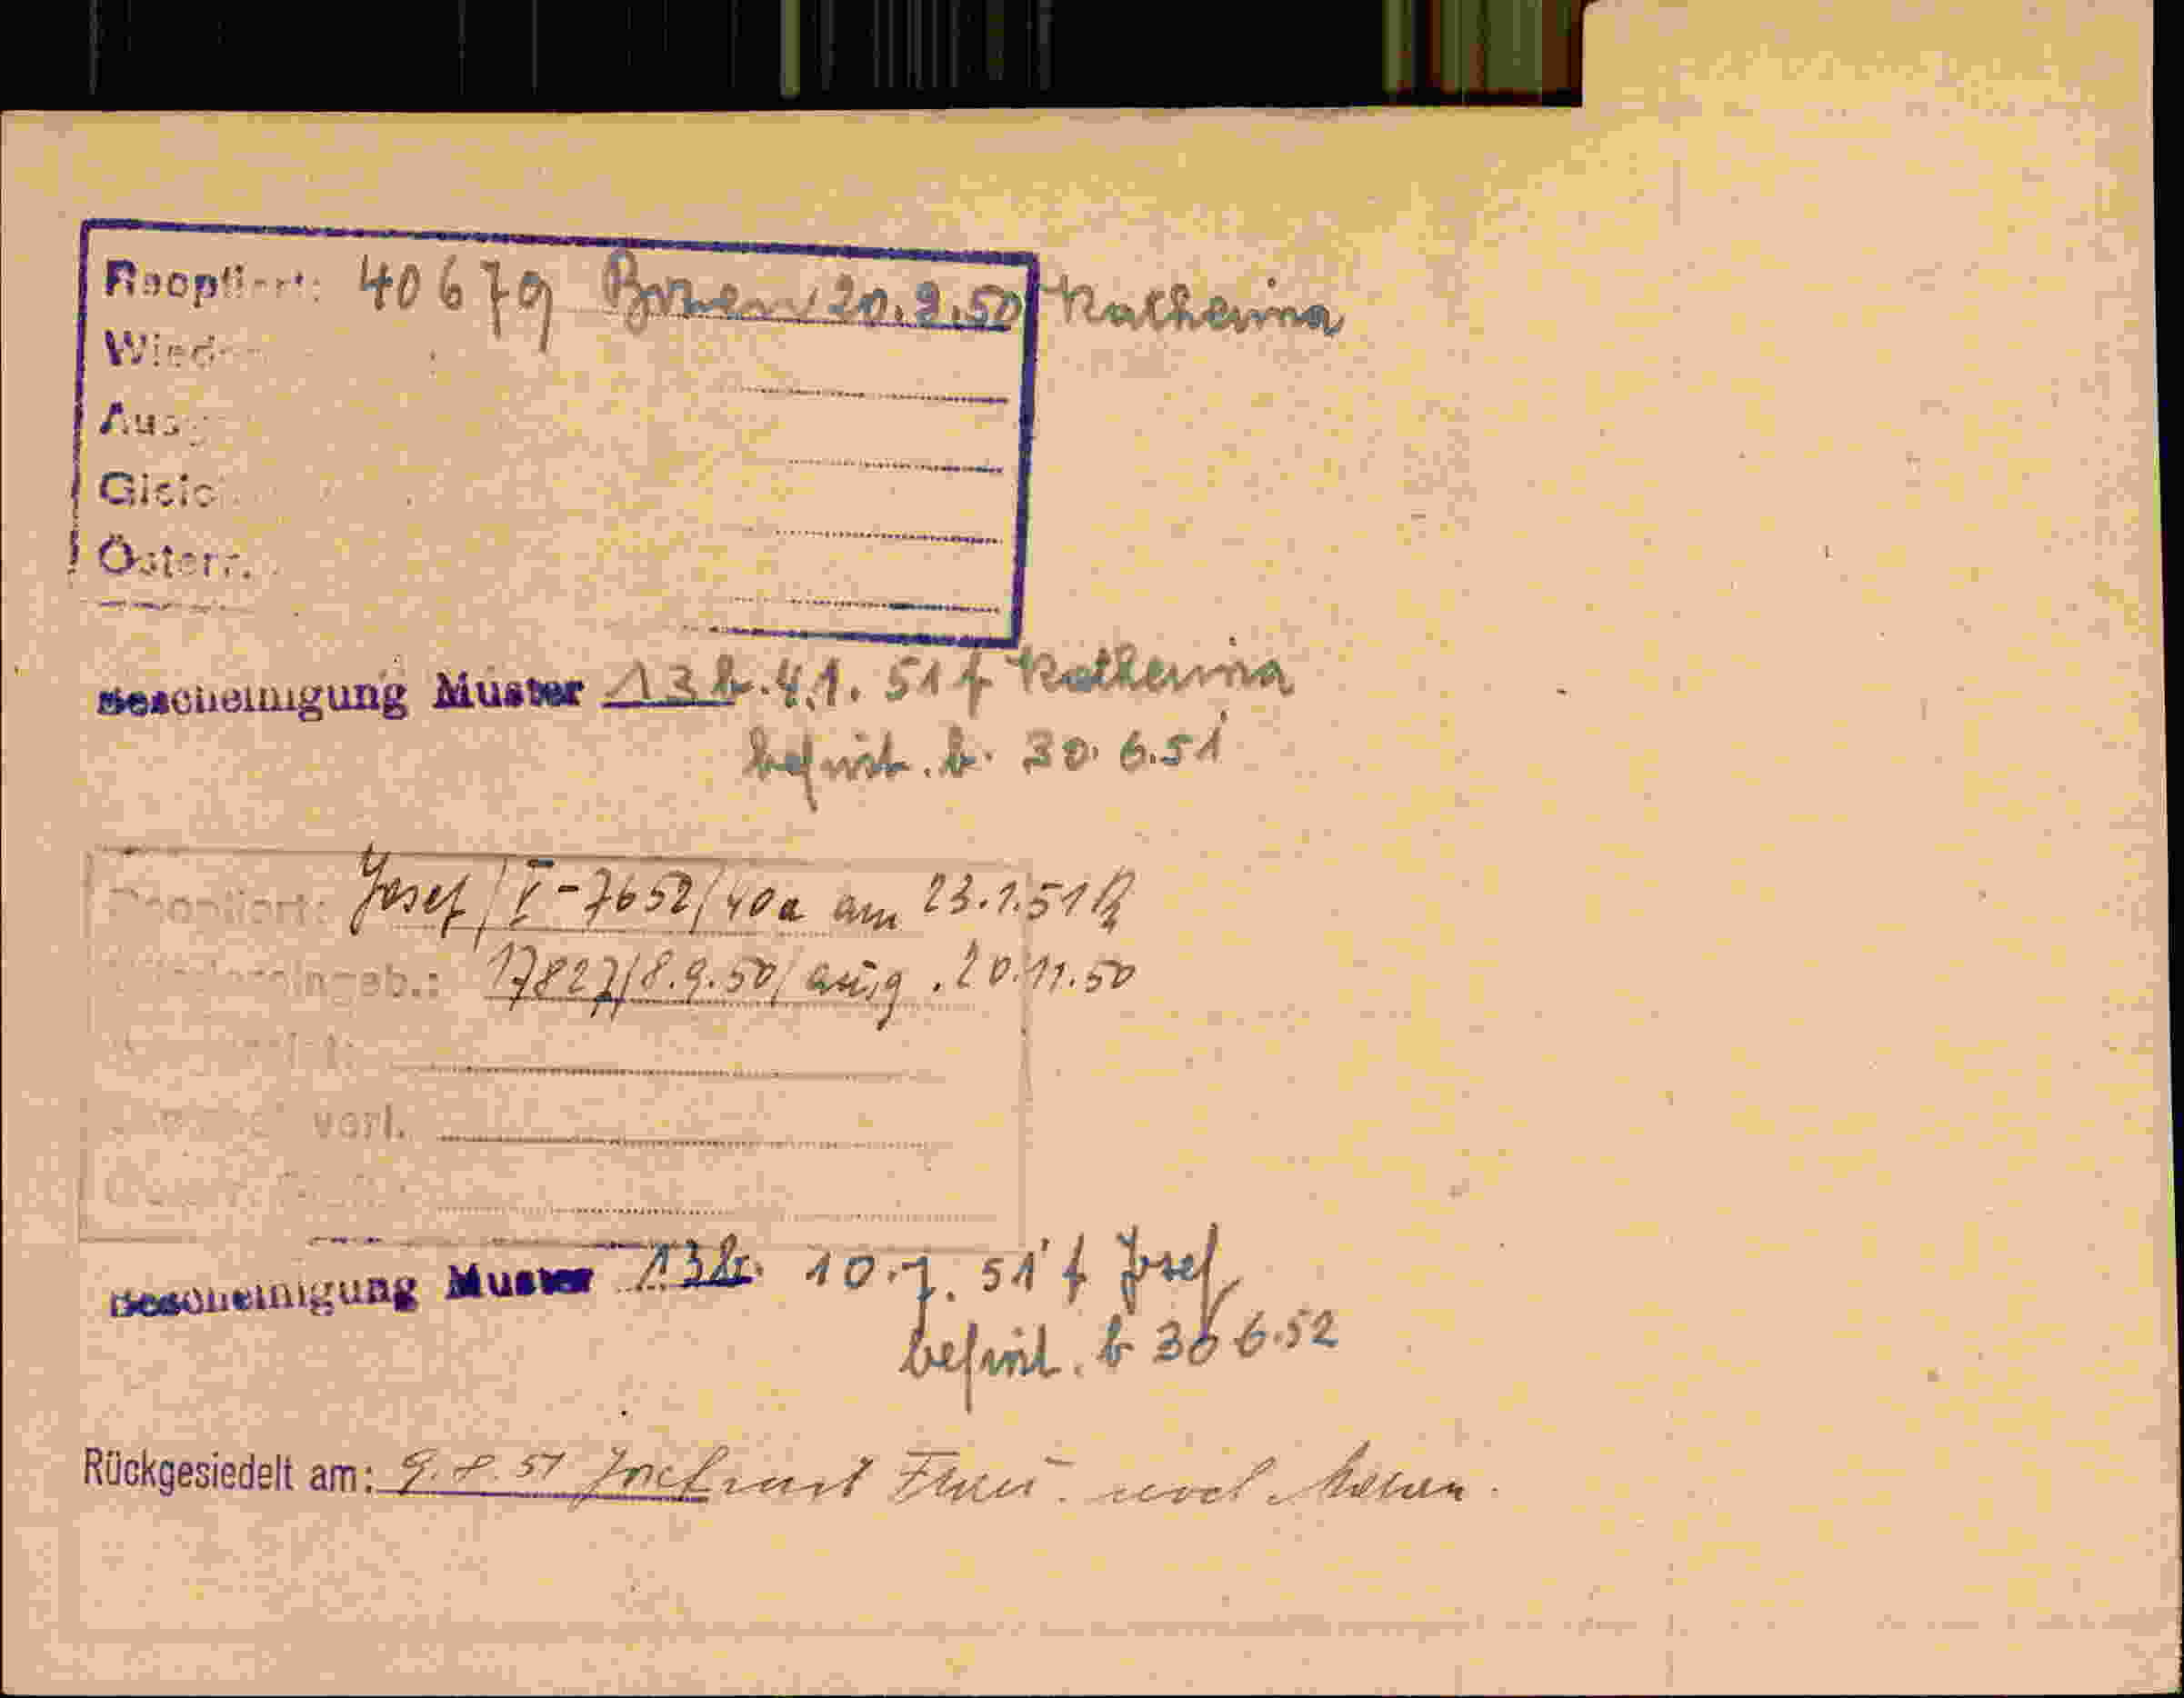 Reoptiert: 40679 Bozen 20.9.50 Katherina
Wied
Ausg
Gleic
Österr.
Bescheinigung Muster 13b. 4.1. 51 f Katherina
befrist. b. 30. 6.51
Reoptiert: Josef / V-7652/40a am 23.1.51
eingeb.: 17827/8.9.50/ ausg. 20.11.50
verl.
Bescheinigung Muster 13b. 10.7. 51 f Josef
befrist. b 30 6.52
Rückgesiedelt am: 9.8.51 Josef nach